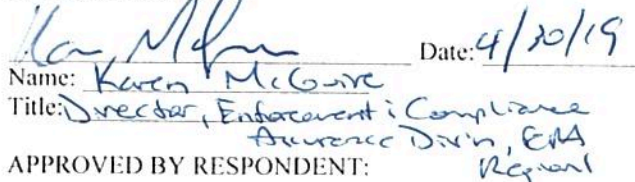 Date: 4/30/19
Name: Karen McGuire
Title: Director, Enforcement & Compliance
Assurance Div'n, EPA
APPROVED BY RESPONDENT: Region 1